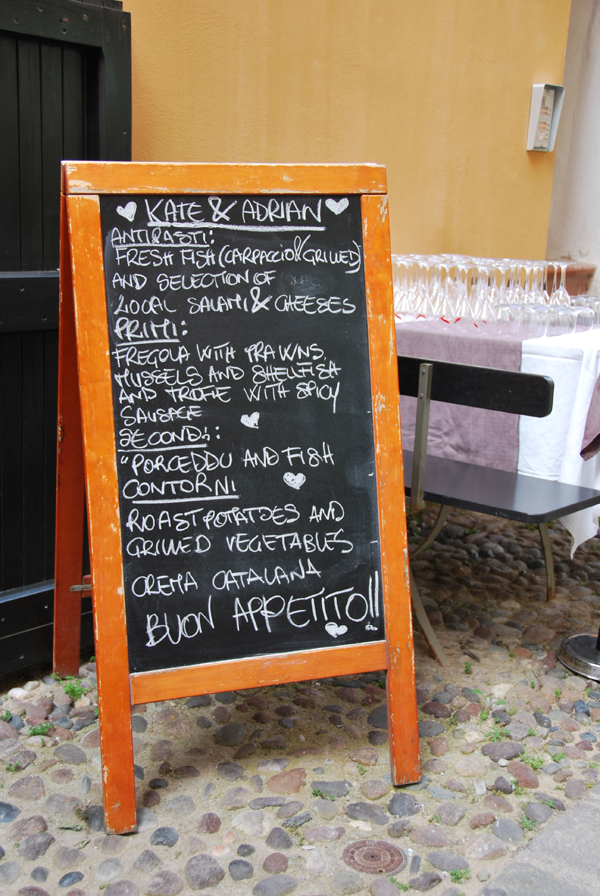 KATE & ADRIAN
ANTIPASTI:
FRESH FISH (CARPACCIO & GRILLED)
AND SELECTION OF
LOCAL SALAMI & CHEESES
PRIMI:
FREGOLA WITH PRAWNS,
MUSSELS AND SHELFISH
AND TROFIE WITH SPICY
SAUSAGE
SECONDI:
"PORCEDDU AND FISH
CONTORNI
ROAST POTATOES AND
GRILLED VEGETABLES
CREMA CATALANA
BUON APPETITO!!